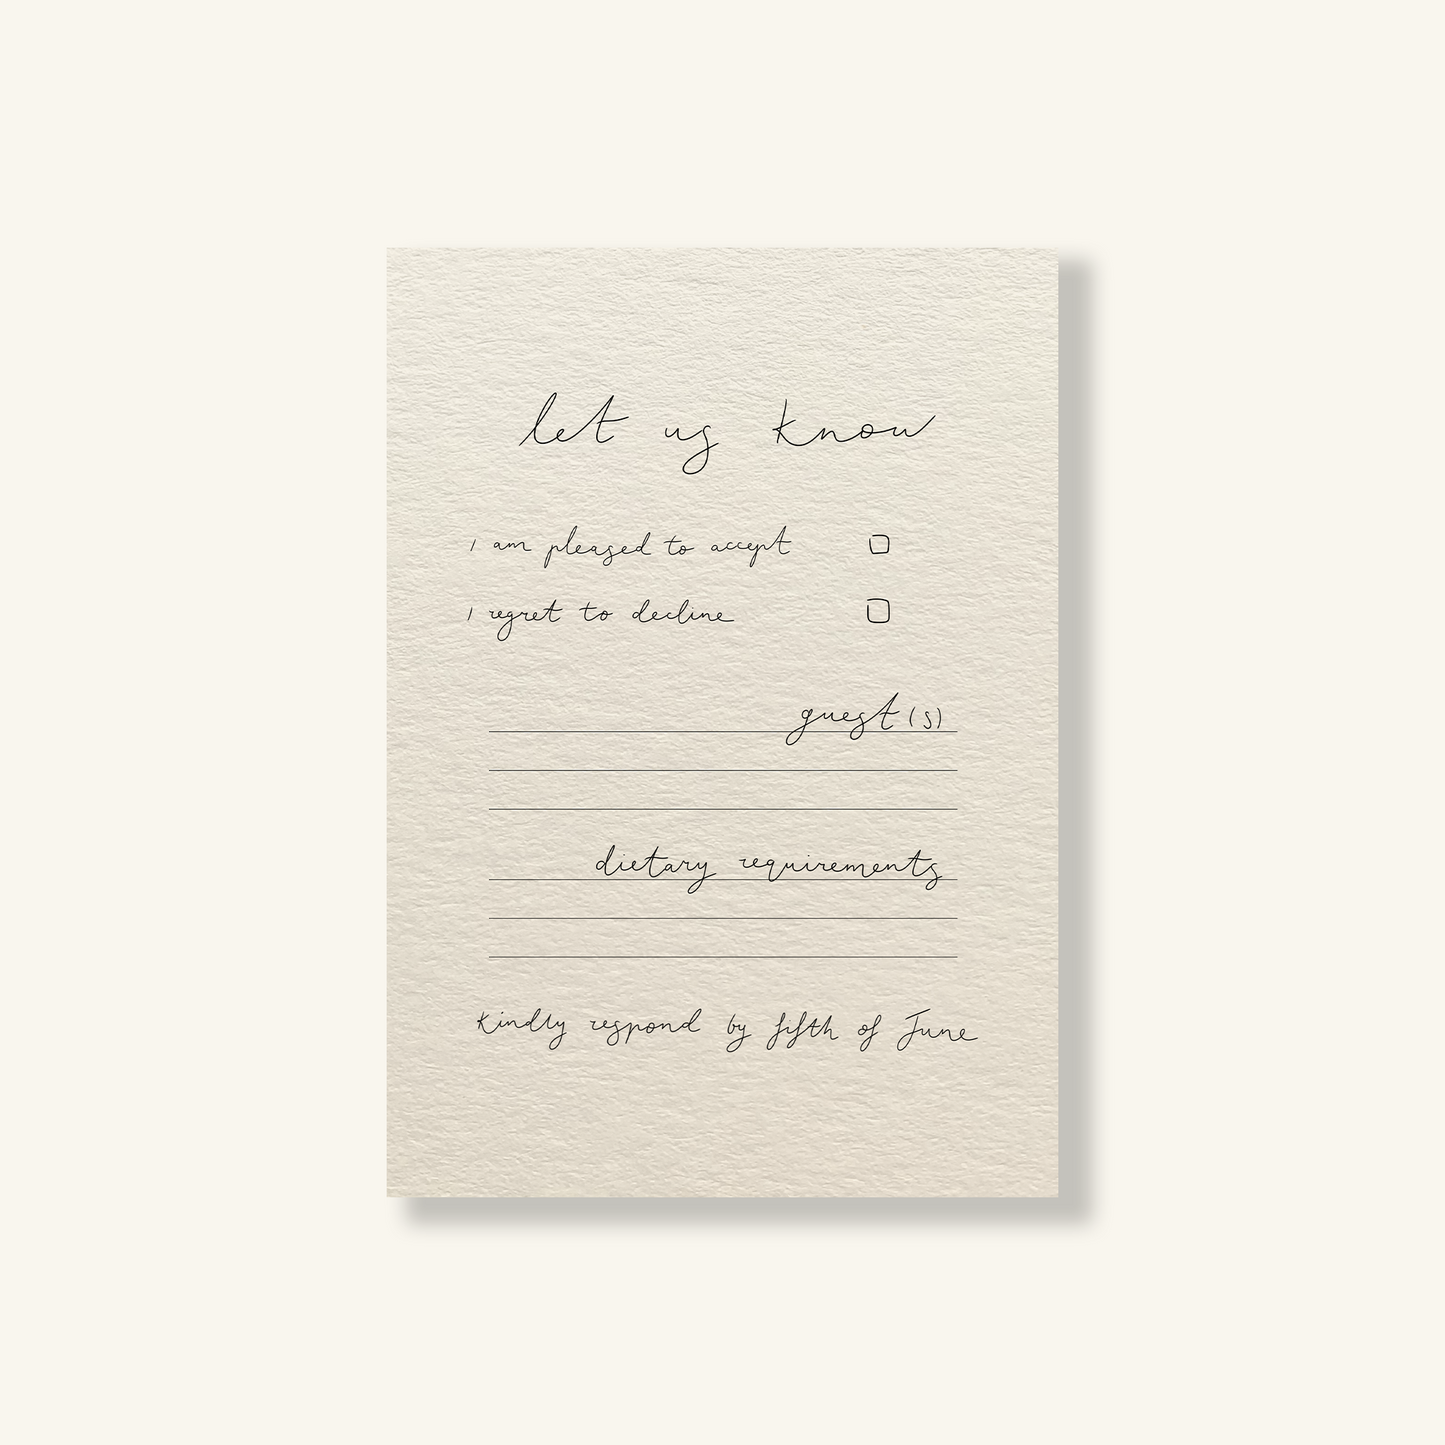 let us know
I am pleased to accept
I regret to decline
guest(s)
dietary requirements
Kindly respond by fifth of June